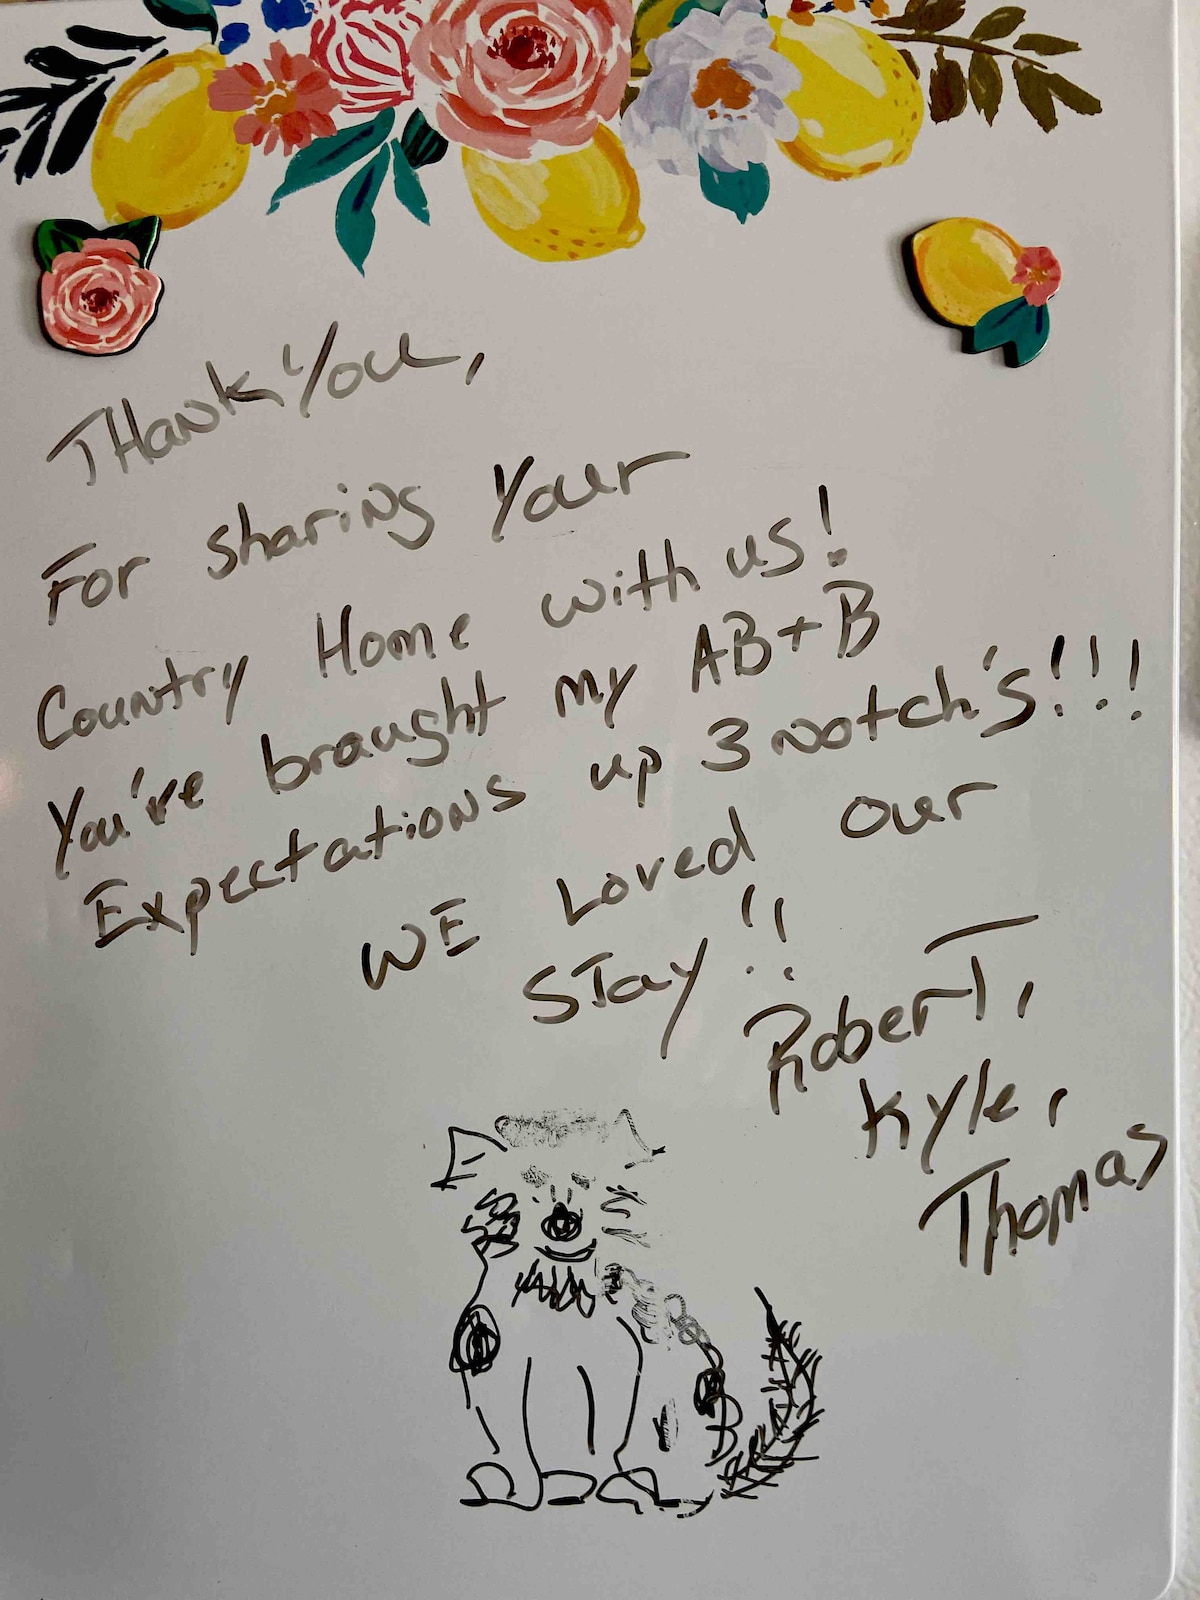 THank You,
For sharing Your
Country Home with us!
You've braught my AB+B
Expectations up 3 notch's!!!
WE Loved our
STay!!
RoberT,
Kyle,
Thomas